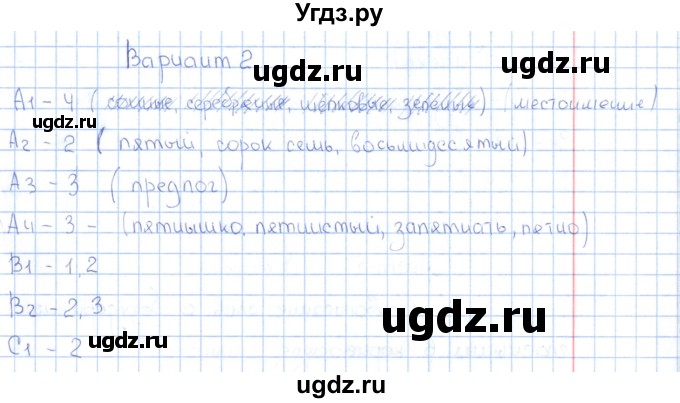 Угдз.ру
Вариант 2
ugdz.ru ugdz.ru
А1 - 4 (сохлые, серебряные, шёлковые, зелёные) (местоимение)
ugdz.ru
А2 - 2 (пятый, сорок семь, восьмидесятый)
ugdz.ru
А3 - 3 (предлог)
А4 - 3 - (пятнышко, пятнистый, запятнать, пятно)
ugdz.ru
В1 - 1, 2
В2 - 2, 3
ugdz.ru
С1 - 2
ugdz.ru
ugdz.ru